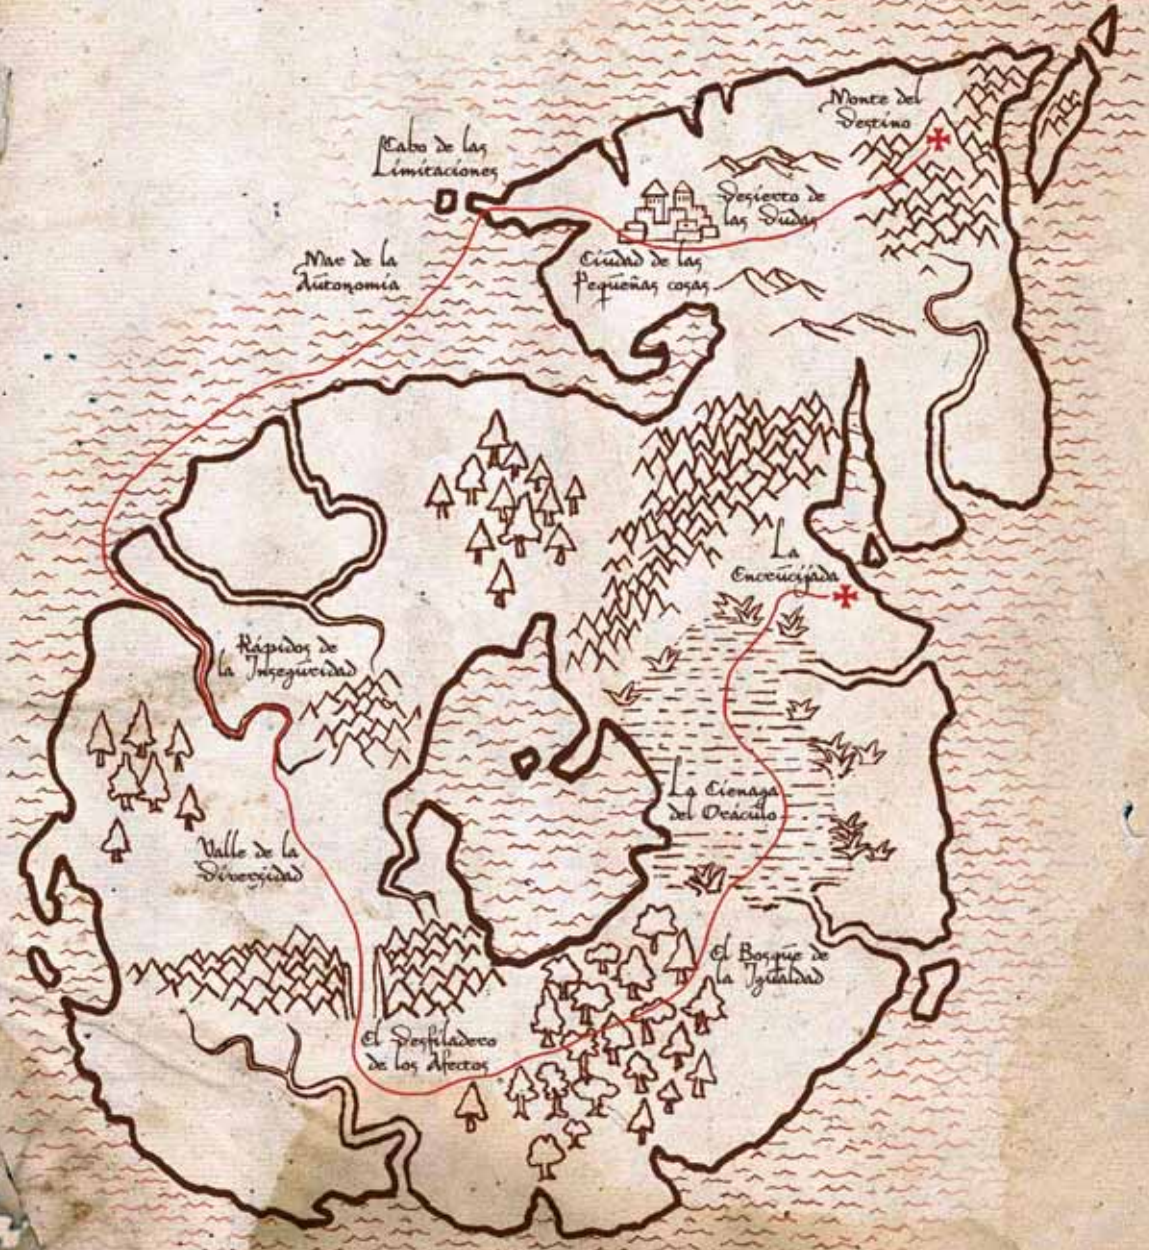 Monte del
Destino
Cabo de las
Limitaciones
Desierto de
las Dudas
Mar de la
Autonomía
Ciudad de las
Pequeñas cosas
La
Encrucijada
Rápidos de
la Inseguridad
La Cienaga
del Oráculo
Valle de la
Diversidad
El Bosque de
la Igualdad
El Desfiladero
de los Afectos